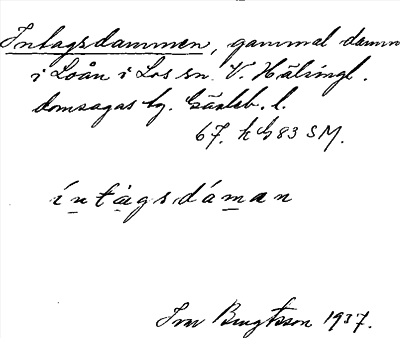 Intagsdammen, gammal damm
i Loån i Los sn. V. Hälsingl.
domsagas tg. Gävleb. l.
67. k G 83 SM.
íntàgsdáman
Ivar Bengtsson 1937.